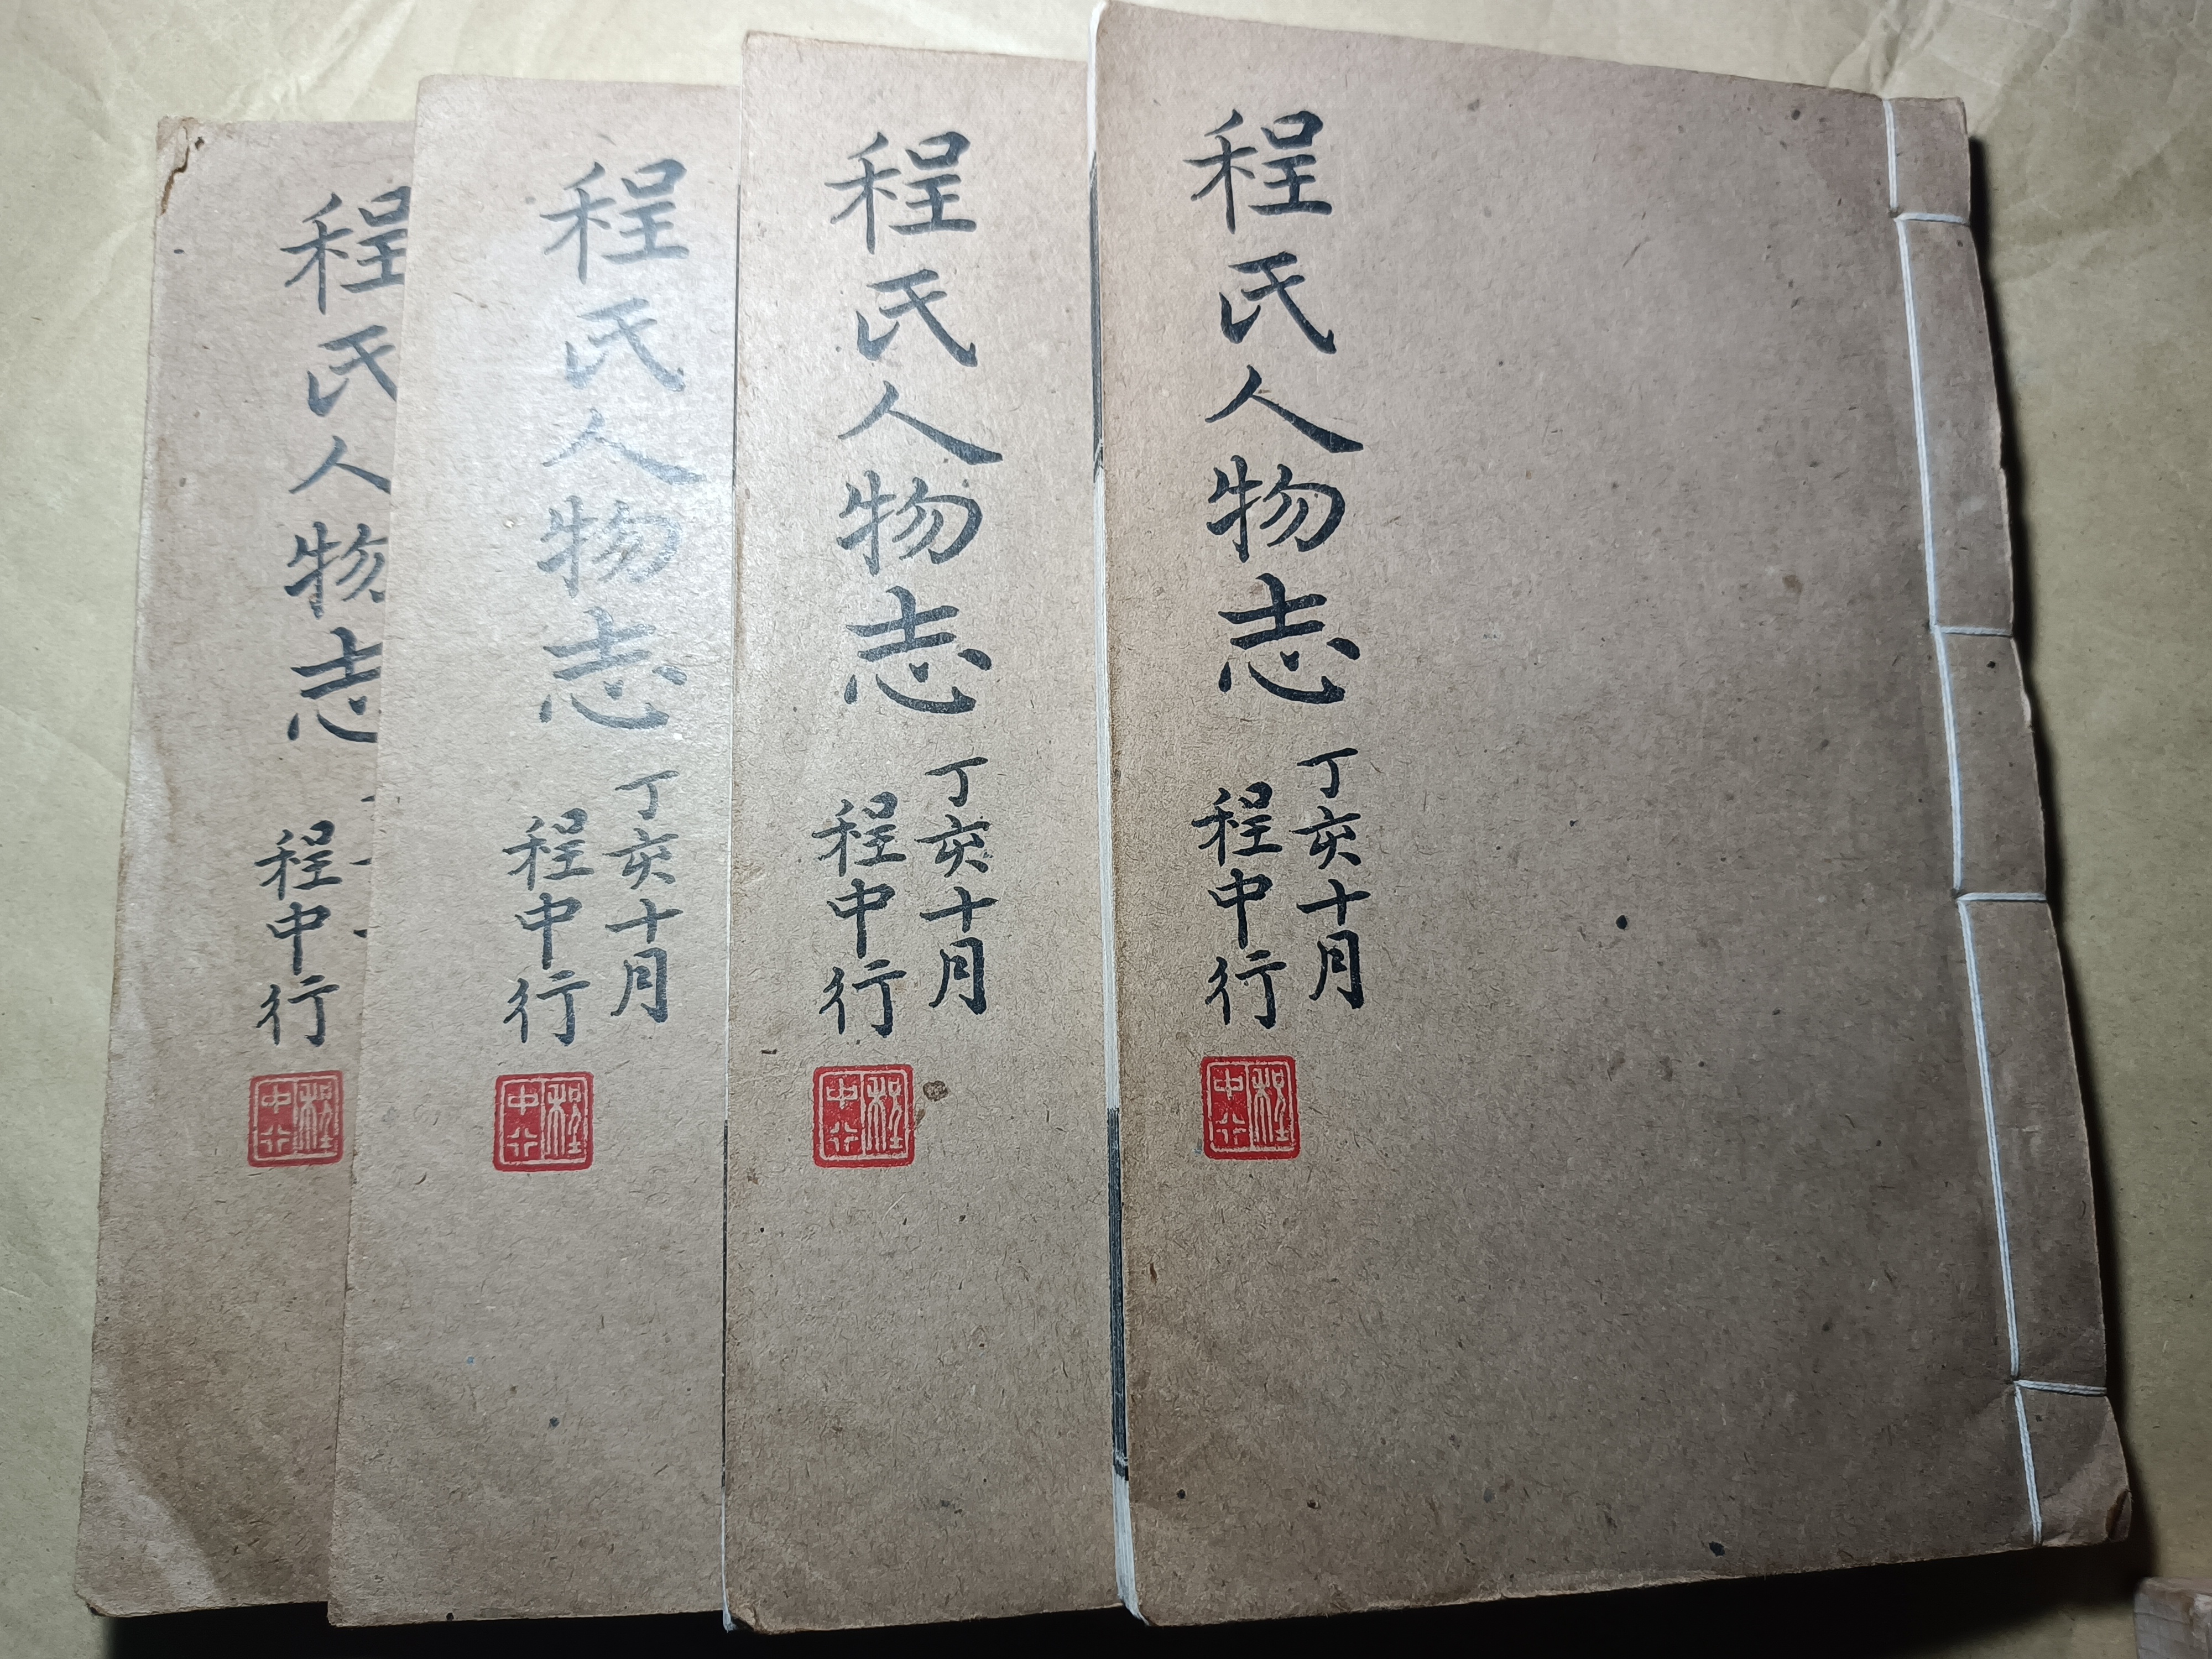 程氏人物志
丁亥十月
程中行
程中行
程氏人物志
丁亥十月
程中行
程中行
程氏人物志
丁亥十月
程中行
程中行
程氏人物志
程中行
程中行